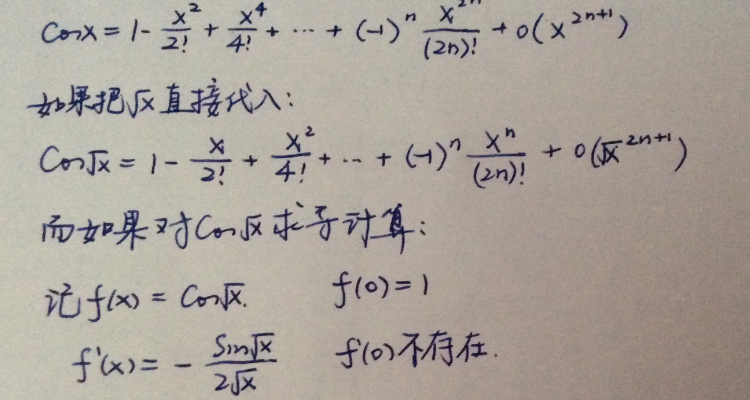 Cosx = 1 - x²/2! + x⁴/4! + ··· + (-1)ⁿ x²ⁿ/(2n)! + o(x²ⁿ⁺¹)
如果把√x直接代入:
Cos√x = 1 - x/2! + x²/4! + ··· + (-1)ⁿ xⁿ/(2n)! + o(√x²ⁿ⁺¹)
而如果对Cos√x求导计算:
记f(x) = Cos√x. f(0) = 1
f'(x) = - Sin√x/2√x f'(0)不存在.